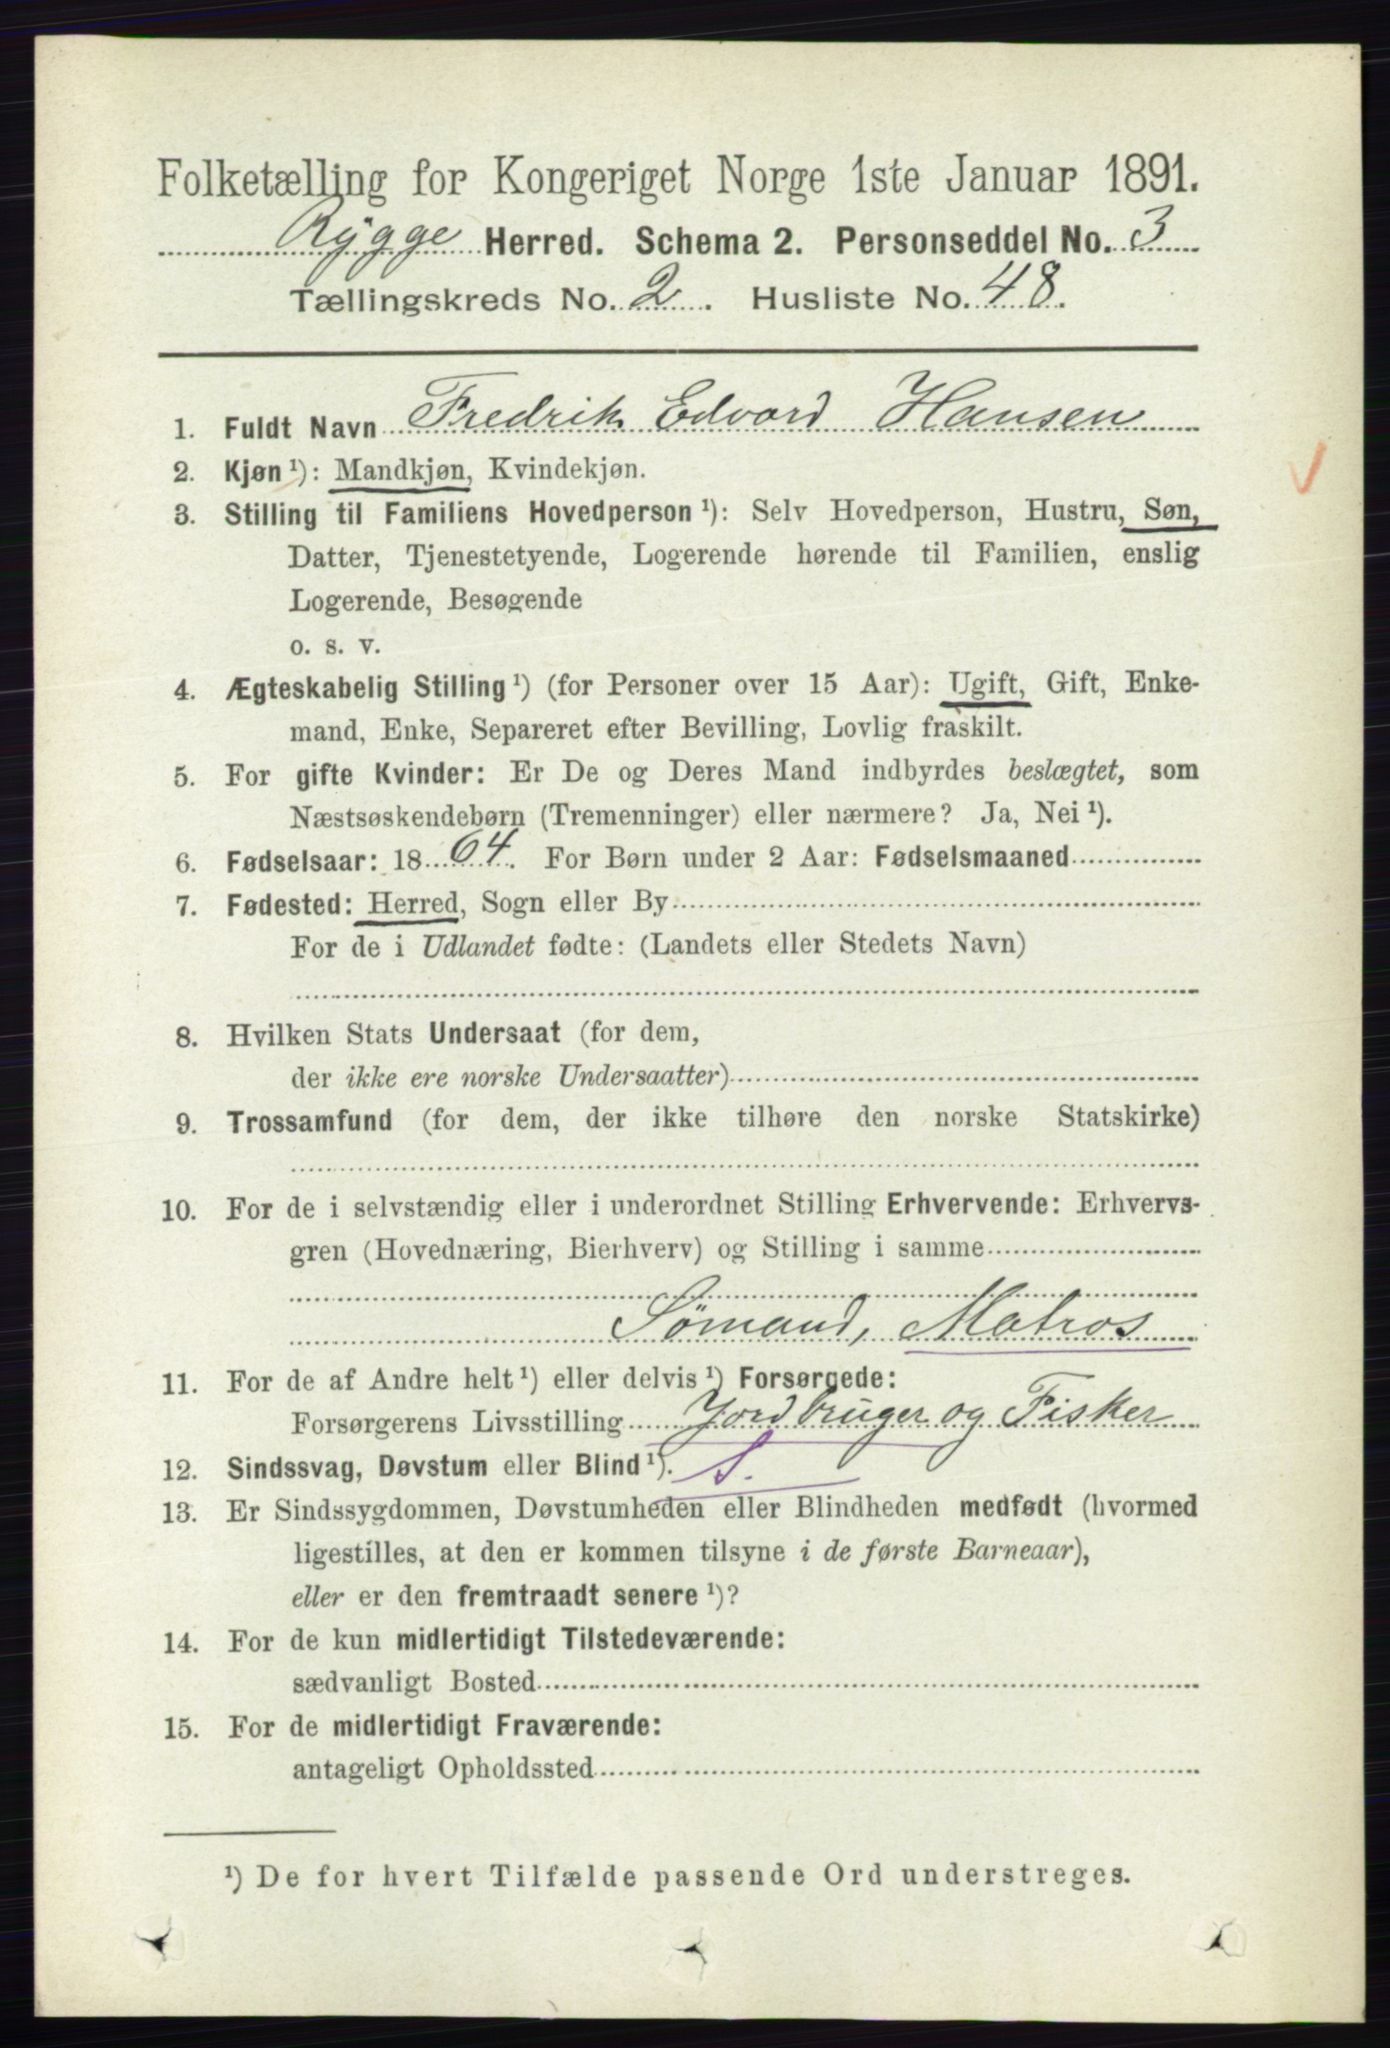 Folketælling for Kongeriget Norge 1ste Januar 1891.
Rygge Herred. Schema 2. Personseddel No. 3
Tællingskreds No. 2. Husliste No. 48.
1. Fuldt Navn Fredrik Edvard Hansen
2. Kjøn ¹): Mandkjøn, Kvindekjøn.
3. Stilling til Familiens Hovedperson ¹): Selv Hovedperson, Hustru, Søn,
Datter, Tjenestetyende, Logerende hørende til Familien, enslig
Logerende, Besøgende
o. s. v.
4. Ægteskabelig Stilling ¹) (for Personer over 15 Aar): Ugift, Gift, Enke-
mand, Enke, Separeret efter Bevilling, Lovlig fraskilt.
5. For gifte Kvinder: Er De og Deres Mand indbyrdes beslægtet, som
Næstsøskendebørn (Tremenninger) eller nærmere? Ja, Nei ¹).
6. Fødselsaar: 1864. For Børn under 2 Aar: Fødselsmaaned
7. Fødested: Herred, Sogn eller By
For de i Udlandet fødte: (Landets eller Stedets Navn)
8. Hvilken Stats Undersaat (for dem,
der ikke ere norske Undersaatter)
9. Trossamfund (for dem, der ikke tilhøre den norske Statskirke)
10. For de i selvstændig eller i underordnet Stilling Erhvervende: Erhvervs-
gren (Hovednæring, Bierhverv) og Stilling i samme
Sømand, Matros
11. For de af Andre helt ¹) eller delvis ¹) Forsørgede:
Forsørgerens Livsstilling Jordbruger og Fisker
12. Sindssvag, Døvstum eller Blind ¹). S.
13. Er Sindssygdommen, Døvstumheden eller Blindheden medfødt (hvormed
ligestilles, at den er kommen tilsyne i de første Barneaar),
eller er den fremtraadt senere ¹)?
14. For de kun midlertidigt Tilstedeværende:
sædvanligt Bosted
15. For de midlertidigt Fraværende:
antageligt Opholdssted
¹) De for hvert Tilfælde passende Ord understreges.